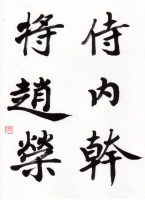 侍内幹
將趙榮